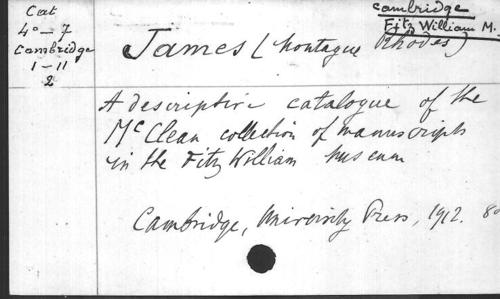 Cat
4° — 7
Cambridge
1 — 11
2
Cambridge
Fitz William M.
James (Montague Rhodes)
A descriptive catalogue of the
McClean collection of manuscripts
in the Fitz William Museum
Cambridge, University Press, 1912. 8°